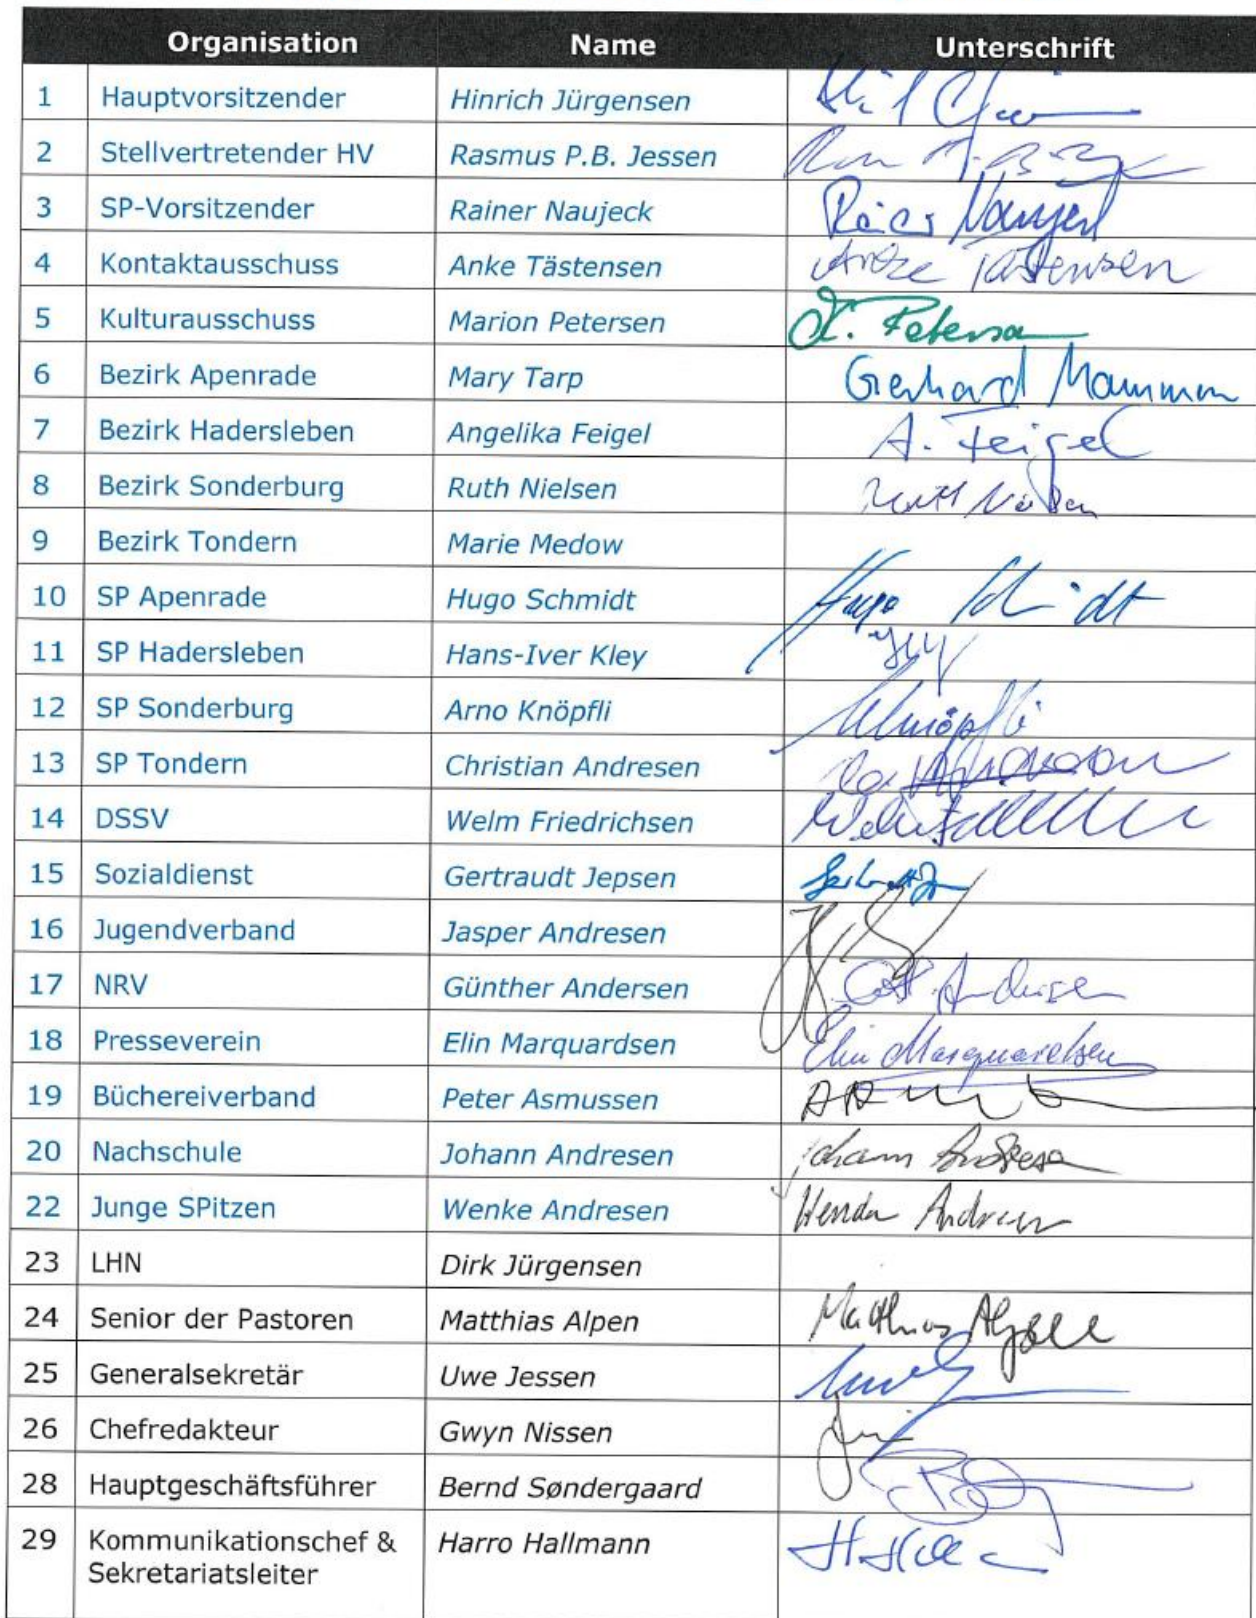 Organisation Name Unterschrift
1 Hauptvorsitzender Hinrich Jürgensen
2 Stellvertretender HV Rasmus P.B. Jessen
3 SP-Vorsitzender Rainer Naujeck
4 Kontaktausschuss Anke Tästensen Anke Tästensen
5 Kulturausschuss Marion Petersen
6 Bezirk Apenrade Mary Tarp Gerhard Mammen
7 Bezirk Hadersleben Angelika Feigel A. Feigel
8 Bezirk Sonderburg Ruth Nielsen
9 Bezirk Tondern Marie Medow
10 SP Apenrade Hugo Schmidt Hugo Schmidt
11 SP Hadersleben Hans-Iver Kley
12 SP Sonderburg Arno Knöpfli
13 SP Tondern Christian Andresen
14 DSSV Welm Friedrichsen
15 Sozialdienst Gertraudt Jepsen
16 Jugendverband Jasper Andresen
17 NRV Günther Andersen
18 Presseverein Elin Marquardsen Elin Marquardsen
19 Büchereiverband Peter Asmussen
20 Nachschule Johann Andresen Johann Andresen
22 Junge SPitzen Wenke Andresen
23 LHN Dirk Jürgensen
24 Senior der Pastoren Matthias Alpen Matthias Alpen
25 Generalsekretär Uwe Jessen
26 Chefredakteur Gwyn Nissen
28 Hauptgeschäftsführer Bernd Søndergaard
29 Kommunikationschef & Harro Hallmann
Sekretariatsleiter